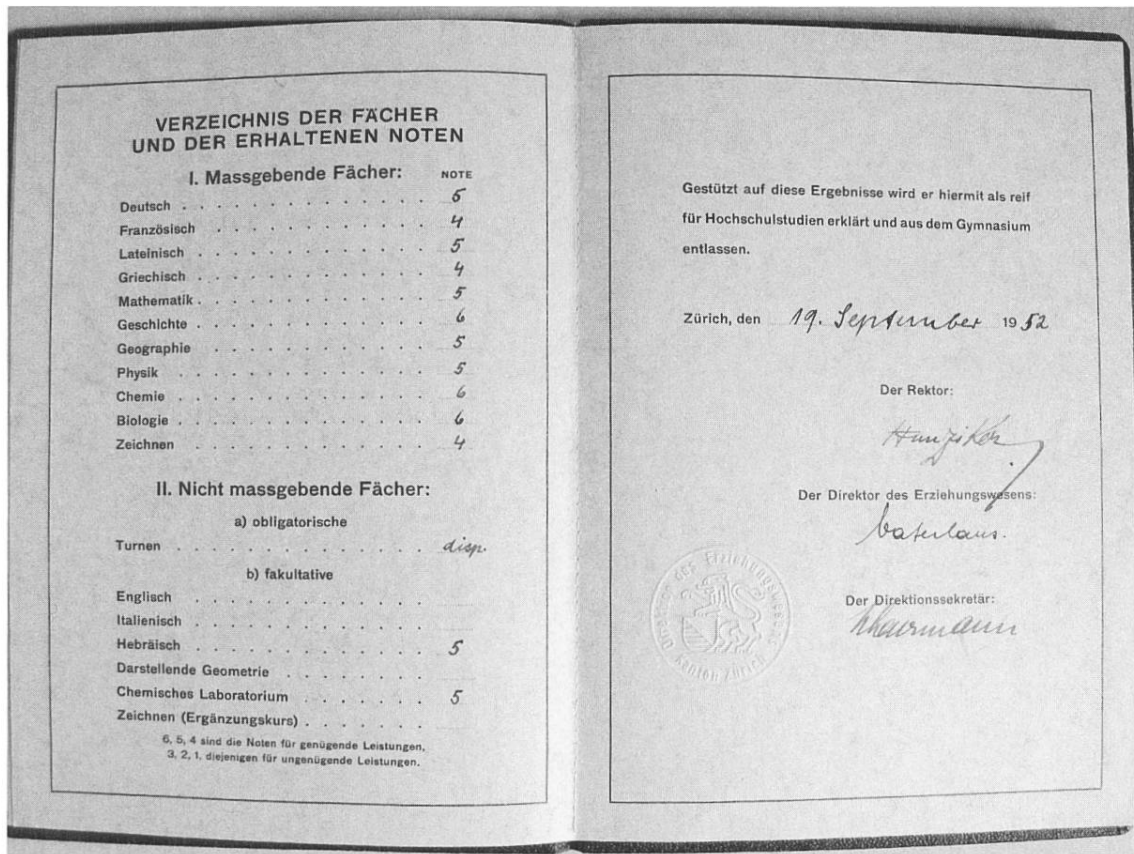 VERZEICHNIS DER FÄCHER
UND DER ERHALTENEN NOTEN
I. Massgebende Fächer: NOTE
Deutsch . . . . . . . . . . . . . . 5
Französisch . . . . . . . . . . . . 4
Lateinisch . . . . . . . . . . . . . 5
Griechisch . . . . . . . . . . . . . 4
Mathematik . . . . . . . . . . . . . 5
Geschichte . . . . . . . . . . . . . 6
Geographie . . . . . . . . . . . . . 5
Physik . . . . . . . . . . . . . . 5
Chemie . . . . . . . . . . . . . . 6
Biologie . . . . . . . . . . . . . . 6
Zeichnen . . . . . . . . . . . . . 4
II. Nicht massgebende Fächer:
a) obligatorische
Turnen . . . . . . . . . . . . . . disp.
b) fakultative
Englisch . . . . . . . . . . . . .
Italienisch . . . . . . . . . . . . .
Hebräisch . . . . . . . . . . . . . 5
Darstellende Geometrie . . . . . . . .
Chemisches Laboratorium . . . . . . . 5
Zeichnen (Ergänzungskurs) . . . . . . .
6, 5, 4 sind die Noten für genügende Leistungen,
3, 2, 1, diejenigen für ungenügende Leistungen.
Gestützt auf diese Ergebnisse wird er hiermit als reif
für Hochschulstudien erklärt und aus dem Gymnasium
entlassen.
Zürich, den 19. September 1952
Der Rektor:
Hunziker
Der Direktor des Erziehungswesens:
Vaterlaus.
Der Direktionssekretär:
Direktion des Erziehungswesens
Kanton Zürich